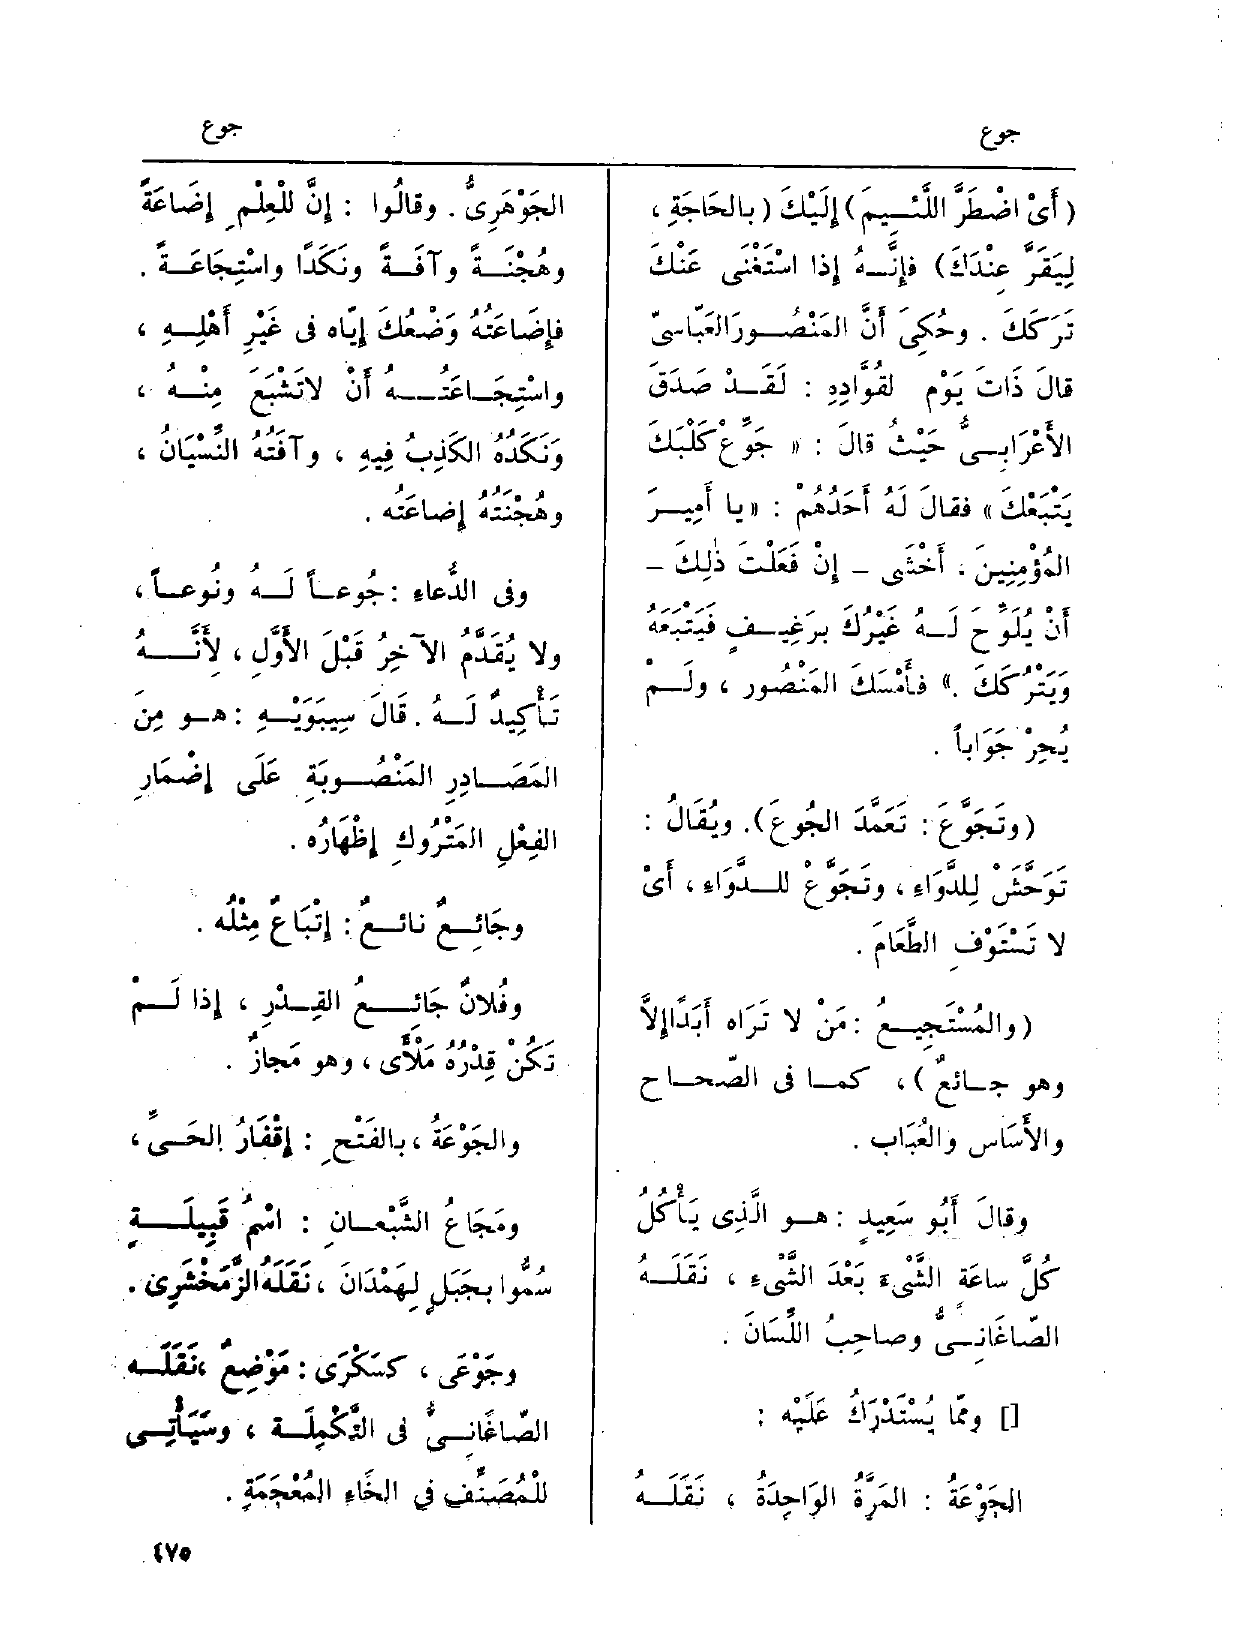 جوع
جوع
(أَىْ اضْطَرَّ اللَّئِـيمَ) إِلَيْكَ (بالحَاجَةِ ،
لِيَقَرَّ عِنْدَكَ) فإِنَّـهُ إِذا اسْتَغْنَى عَنْكَ
تَرَكَكَ . وحُكِىَ أَنَّ المَنْصُـورَ العَبّاسىّ
قالَ ذَاتَ يَوْمٍ لقُوَّادِهِ : لَقَـدْ صَدَقَ
الأَعْرَابِـىُّ حَيْثُ قالَ : « جَوِّعْ كَلْبَكَ
يَتْبَعْكَ » فقالَ لَهُ أَحَدُهُمْ : «يا أَمِيـرَ
المُؤْمِنِينَ . أَخْشَى – إِنْ فَعَلْتَ ذٰلِكَ –
أَنْ يُلَوِّحَ لَـهُ غَيْرُكَ برَغِيـفٍ فَيَتْبَعَهُ
وَيَتْرُكَكَ .» فأَمْسَكَ المَنْصُور ، ولَـمْ
يُحِرْ جَوَاباً .
(وتَجَوَّعَ : تَعَمَّدَ الجُوعَ). ويُقَالُ :
تَوَحَّشْ لِلدَّوَاءِ ، وتَجَوَّعْ للـدَّوَاءِ ، أَىْ
لا تَسْتَوْفِ الطَّعَامَ .
(والمُسْتَجِيـعُ : مَنْ لا تَرَاه أَبَدًا إِلاَّ
وهو جـائعٌ)، كمـا فى الصّحـاح
والأَسَاس والعُبَاب .
وقالَ أَبُو سَعِيدٍ : هـو الَّذِى يَأْكُلُ
كُلَّ ساعَة الشَّىءَ بَعْدَ الشَّىءِ ، نَقَلَـهُ
الصّاغَانِـىُّ وصاحِبُ اللِّسَانِ .
[] وممّا يُسْتَدْرَكُ عَلَيْه :
الجَوْعَةُ : المَرَّةُ الوَاحِدَةُ ، نَقَلَـهُ
الجَوْهَرِىُّ . وقالُوا : إِنَّ للْعِلْمِ إِضَاعَةً
وهُجْنَـةً وآفَـةً ونَكَدًا واسْتِجَاعَـةً .
فإِضَاعَتُهُ وَضْعُكَ إِيّاه فى غَيْرِ أَهْلِـهِ ،
واسْتِجَـاعَتُـــهُ أَنْ لاتَشْبَعَ مِنْـهُ ،
ونَكَدُهُ الكَذِبُ فِيهِ ، وآفَتُهُ النِّسْيَانُ ،
وهُجْنَتُهُ إِضاعَتُه .
وفى الدُّعاءِ : جُوعـاً لَـهُ ونُوعـاً ،
ولا يُقَدَّمُ الآخِرُ قَبْلَ الأَوَّلِ ، لأَنَّـــهُ
تَأْكِيدٌ لَـهُ . قَالَ سِيبَوَيْـهِ : هـو مِنَ
المَصَـادِرِ المَنْصُـوبَةِ عَلَى إِضْمَارِ
الفِعْلِ المَتْرُوكِ إِظْهَارُه .
وجَائِـعٌ نائـعٌ : إِتْبَاعٌ مِثْلُه .
وفُلانٌ جَائِـــعُ القِـدْرِ ، إِذا لَـمْ
تَكُنْ قِدْرُهُ مَلْأَى ، وهو مَجازٌ .
والجَوْعَةُ ، بالفَتْحِ : إِقْفَارُ الحَـىِّ ،
ومَجَاعُ الشَّبْعـانِ : اسْمُ قَبِيلَـــةٍ
سُمُّوا بجَبَلٍ لِهَمْدَانَ ، نَقَلَهُ الزَّمَخْشَرِىّ .
وجَوْعَى ، كسَكْرَى : مَوْضِعٌ ،نَقَلَـه
الصّاغَانِـىُّ فى التَّكْمِلَـة ، وسَيَأْتِـى
للْمُصَنِّف فى الخَاءِ المُعْجَمَةِ .
٤٧٥